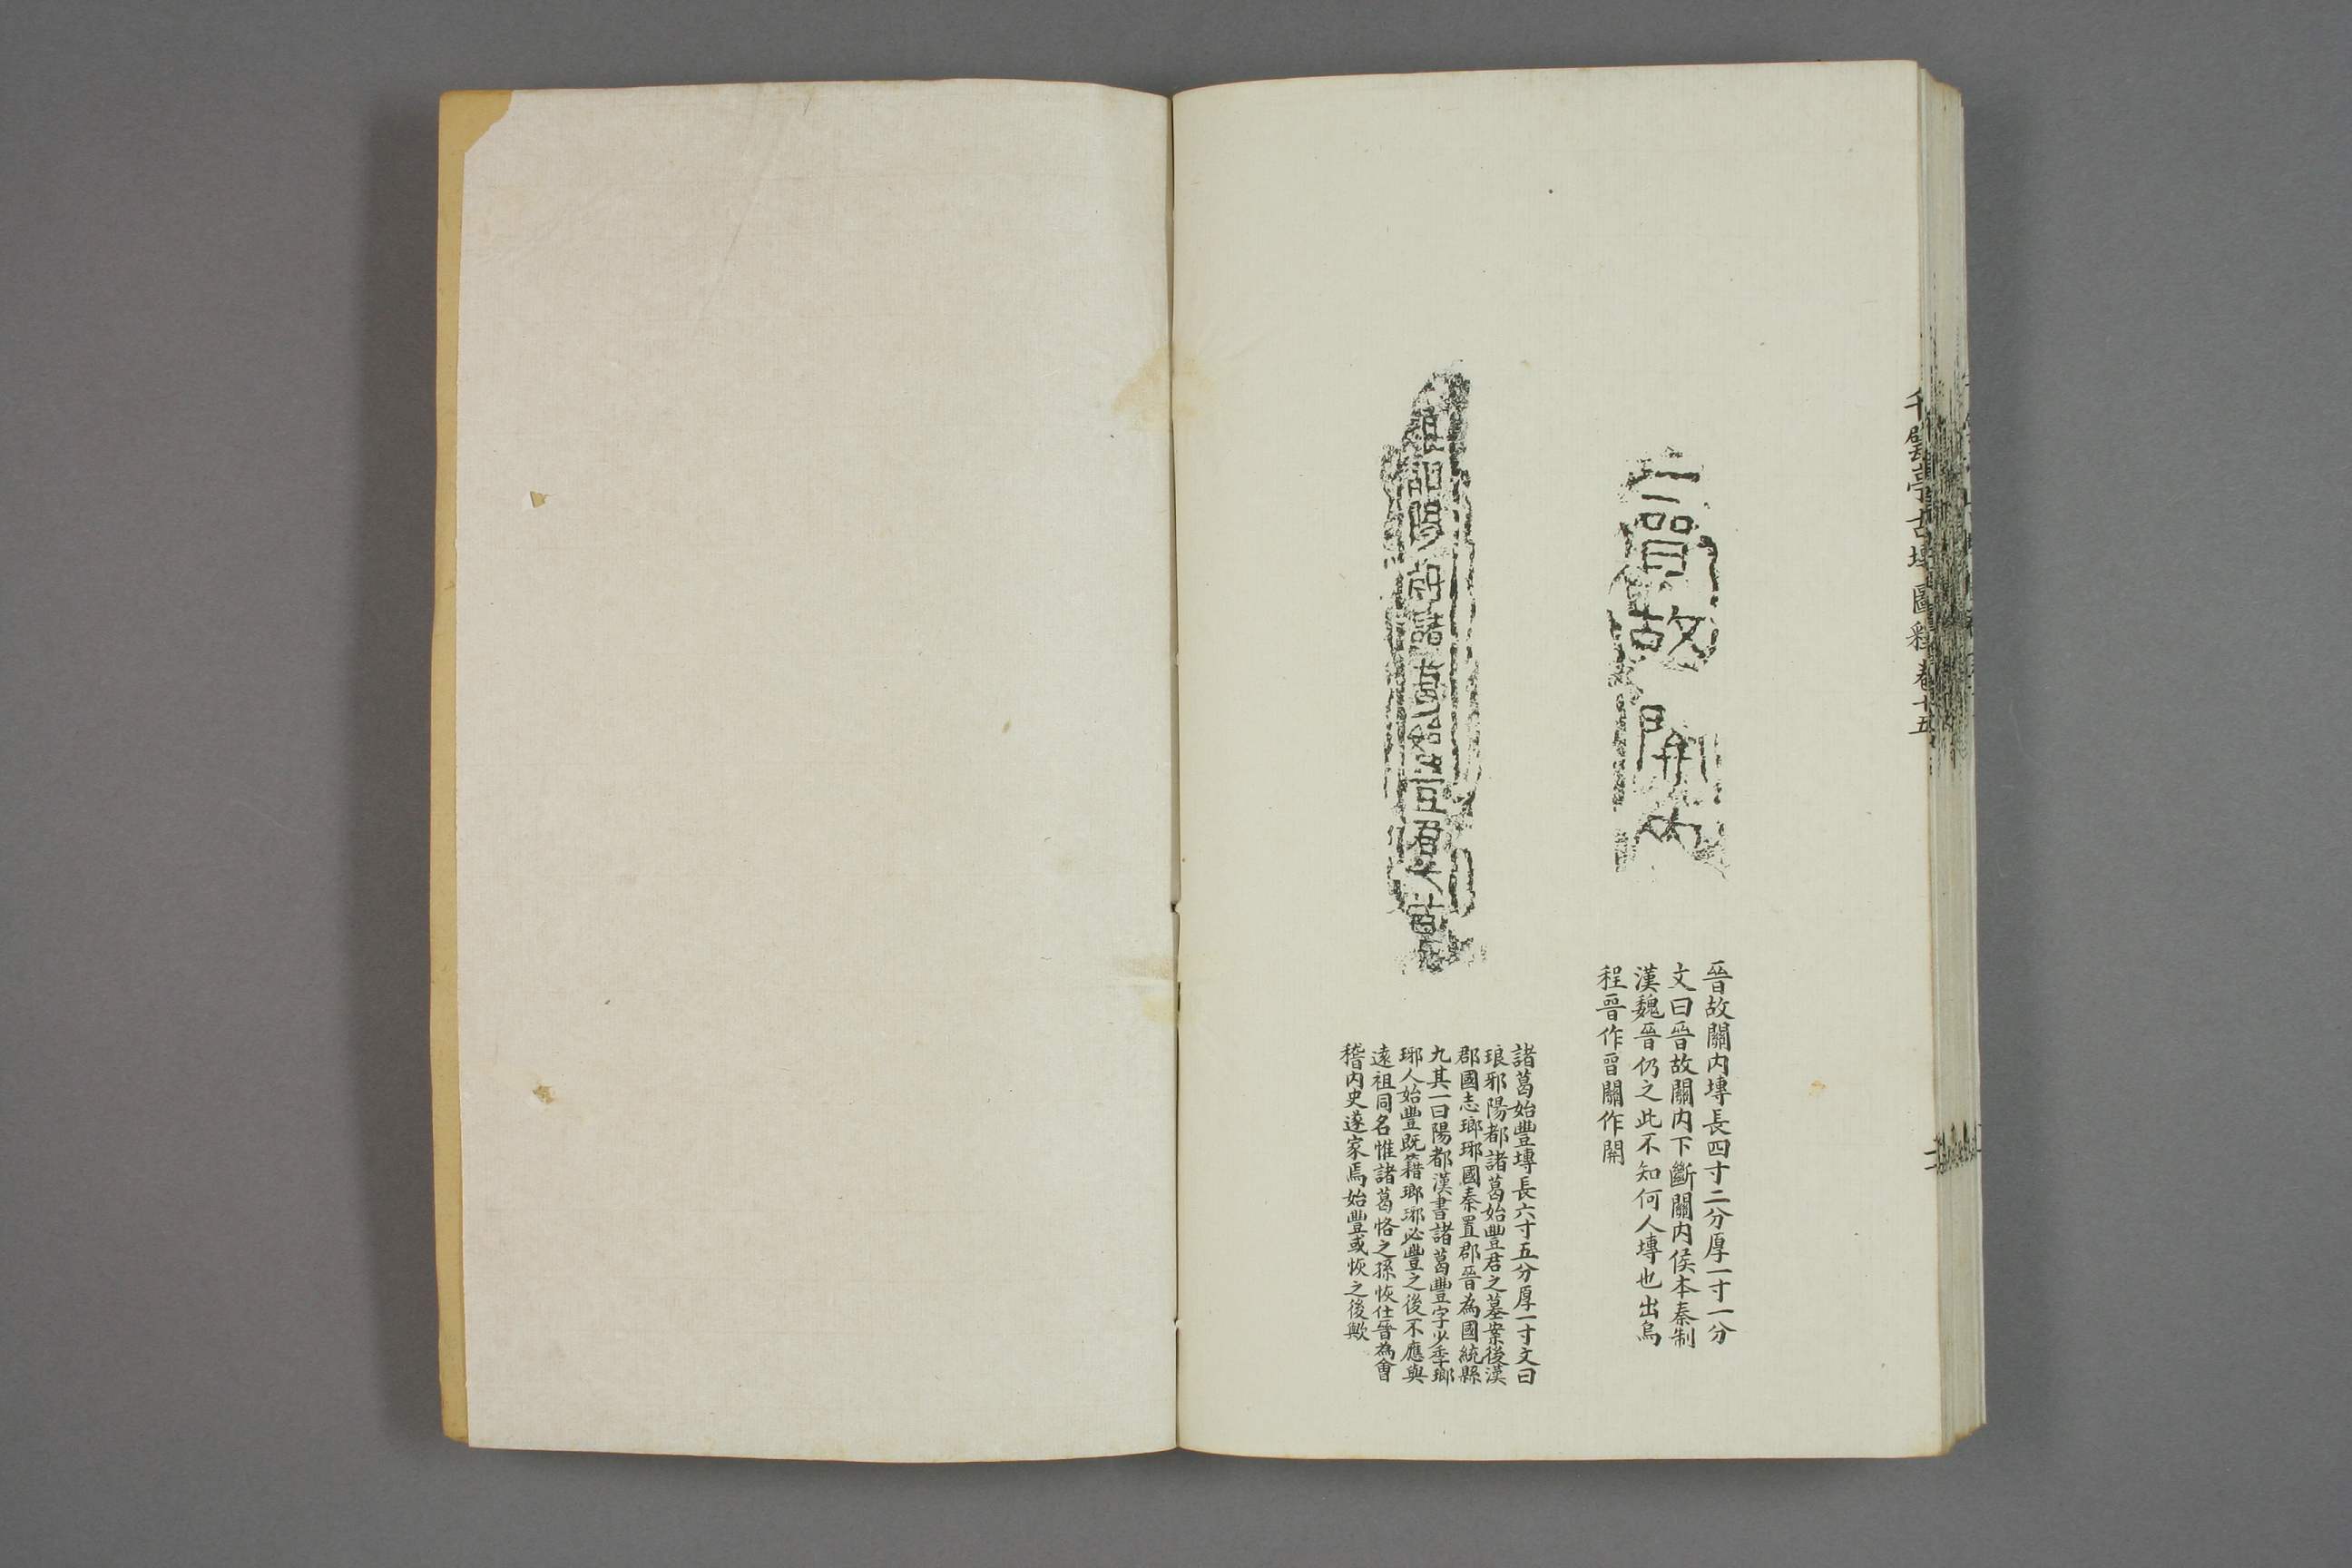 千甓亭古塼圖釋卷十五
晉故關内塼長四寸二分厚一寸一分
文曰晉故關内下斷關内侯本秦制
漢魏晉仍之此不知何人塼也出烏
程晉作曶關作開
琅邪陽都諸葛始豐君之墓
諸葛始豐塼長六寸五分厚一寸文曰
琅邪陽都諸葛始豐君之墓案後漢
郡國志瑯琊國秦置郡晉為國統縣
九其一曰陽都漢書諸葛豐字少季瑯
琊人始豐既籍瑯琊必豐之後不應與
遠祖同名惟諸葛恪之孫恢仕晉為會
稽内史遂家焉始豐或恢之後歟